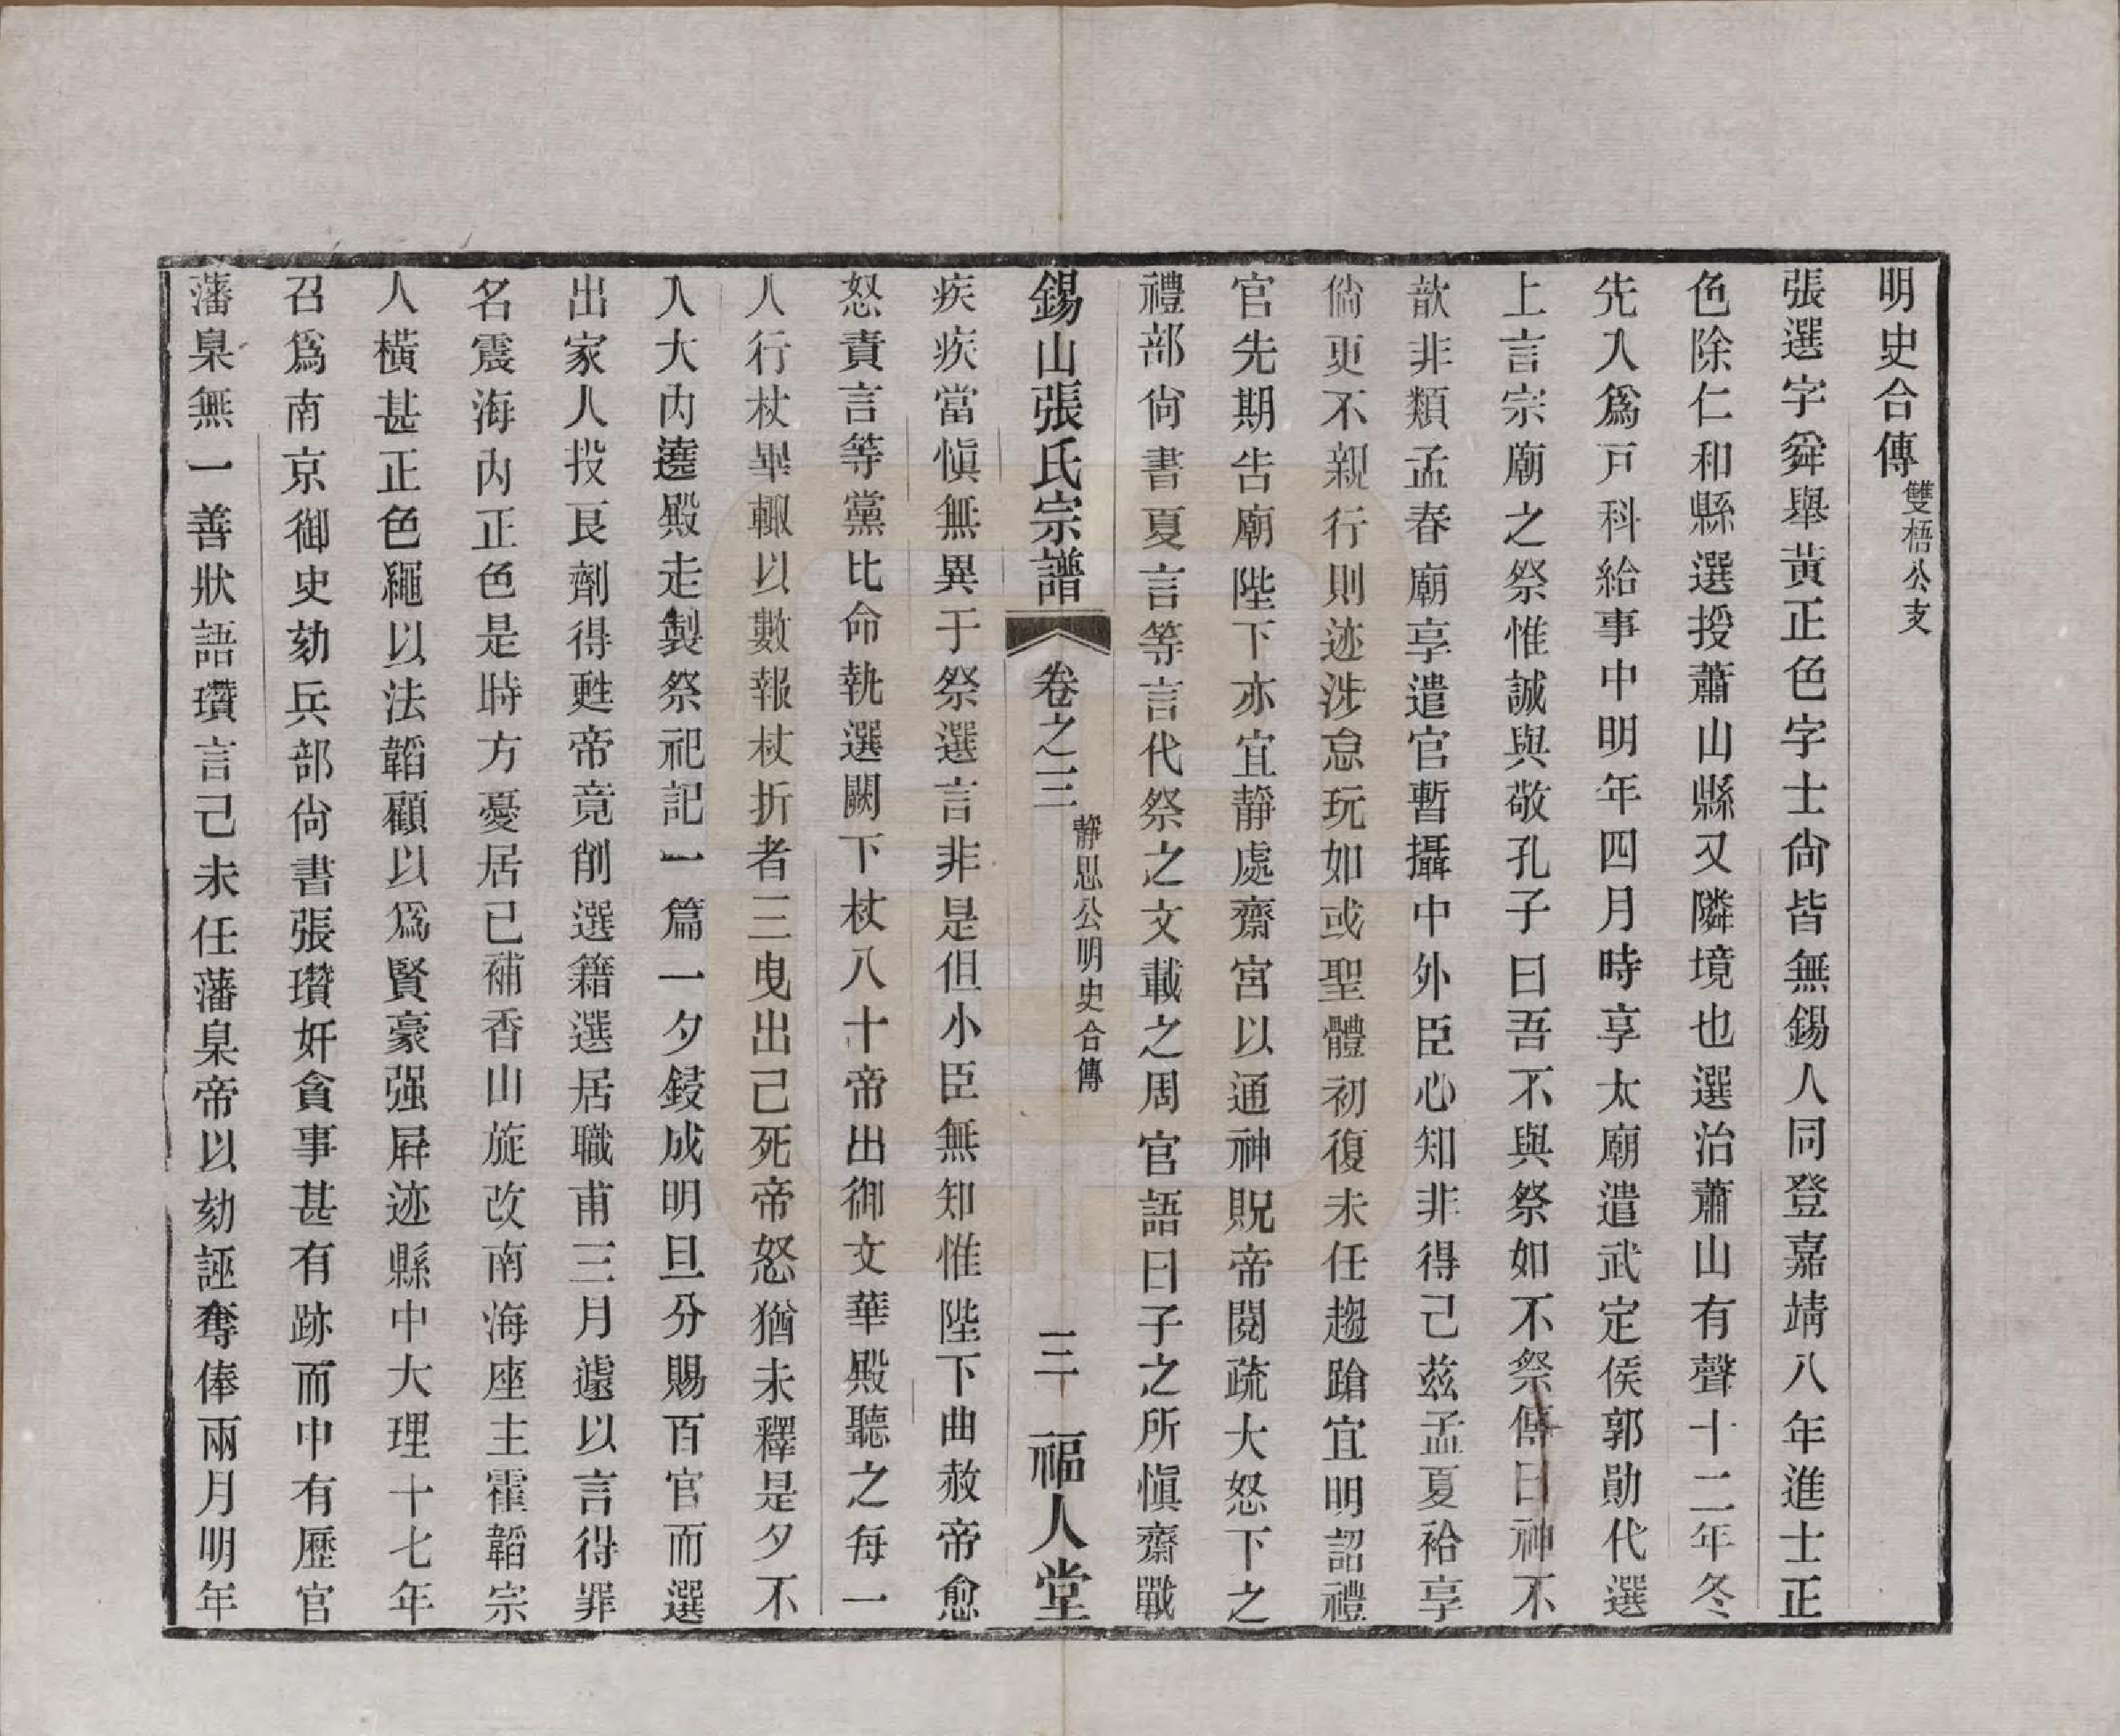 明史合傳雙梧公支
張選字舜舉黃正色字士尙皆無錫人同登嘉靖八年進士正
色除仁和縣選授蕭山縣又隣境也選治蕭山有聲十二年冬
先入爲戶科給事中明年四月時享太廟遣武定侯郭勛代選
上言宗廟之祭惟誠與敬孔子曰吾不與祭如不祭傳曰神不
歆非類孟春廟享遣官暫攝中外臣心知非得已茲孟夏祫享
倘更不親行則迹涉怠玩如或聖體初復未任趨蹌宜明詔禮
官先期告廟陛下亦宜靜處齋宮以通神貺帝閱疏大怒下之
禮部尙書夏言等言代祭之文載之周官語曰子之所愼齋戰
錫山張氏宗譜 卷之三 靜思公明史合傳 三 福人堂
疾疾當愼無異于祭選言非是但小臣無知惟陛下曲赦帝愈
怒責言等黨比命執選闕下杖八十帝出御文華殿聽之每一
人行杖畢輒以數報杖折者三曳出已死帝怒猶未釋是夕不
入大內遶殿走製祭祀記一篇一夕鋟成明旦分賜百官而選
出家人投良劑得甦帝竟削選籍選居職甫三月遽以言得罪
名震海內正色是時方憂居已補香山旋改南海座主霍韜宗
人橫甚正色繩以法韜顧以爲賢豪强屛迹縣中大理十七年
召爲南京御史劾兵部尙書張瓚奸貪事甚有跡而中有歷官
藩臬無一善狀語瓚言己未任藩臬帝以劾誣奪俸兩月明年